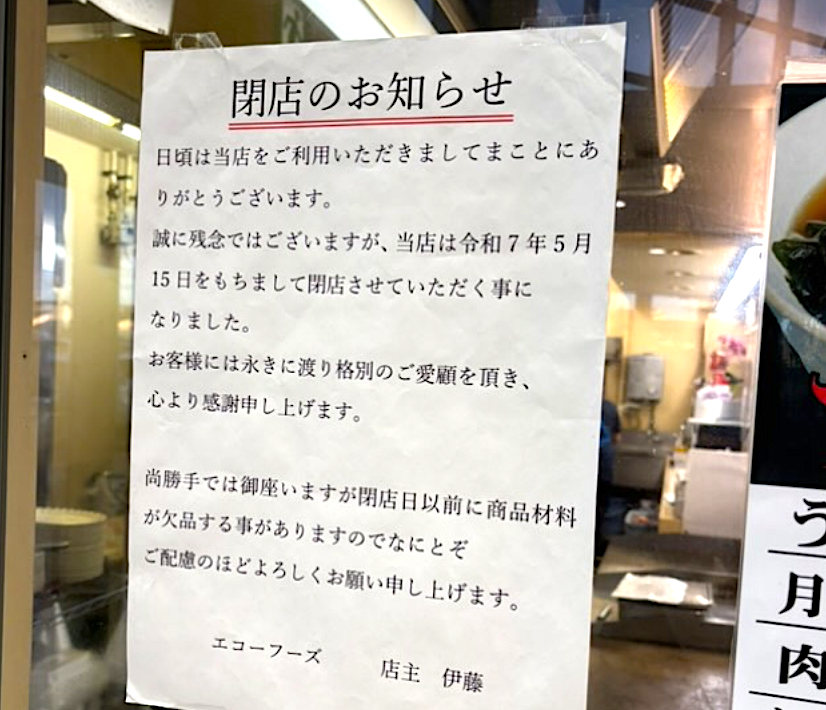 閉店のお知らせ
日頃は当店をご利用いただきましてまことにあ
りがとうございます。
誠に残念ではございますが、当店は令和７年５月
15日をもちまして閉店させていただく事に
なりました。
お客様には永きに渡り格別のご愛顧を頂き、
心より感謝申し上げます。
尚勝手では御座いますが閉店日以前に商品材料
が欠品する事がありますのでなにとぞ
ご配慮のほどよろしくお願い申し上げます。
エコーフーズ　　店主　伊藤
う
月
肉